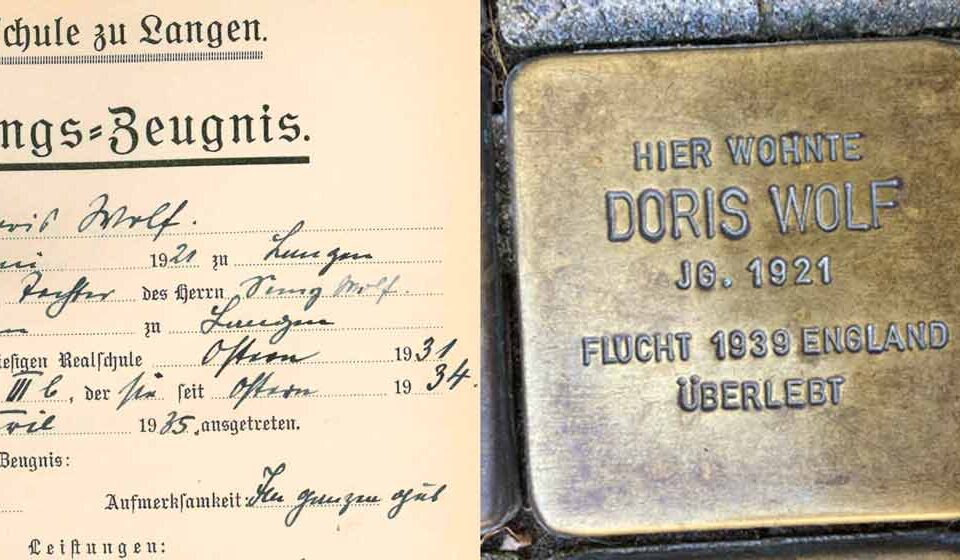 schule zu Langen.
ngs=Zeugnis.
oris Wolf.
ni 1921 zu Langen
Tochter des Herrn Wolf.
zu Langen
iesigen Realschule Ostern 1931
III b, der sie seit Ostern 1934.
ril 1935. ausgetreten.
Zeugnis:
Aufmerksamkeit: Im ganzen gut
Leistungen:
HIER WOHNTE
DORIS WOLF
JG. 1921
FLUCHT 1939 ENGLAND
ÜBERLEBT